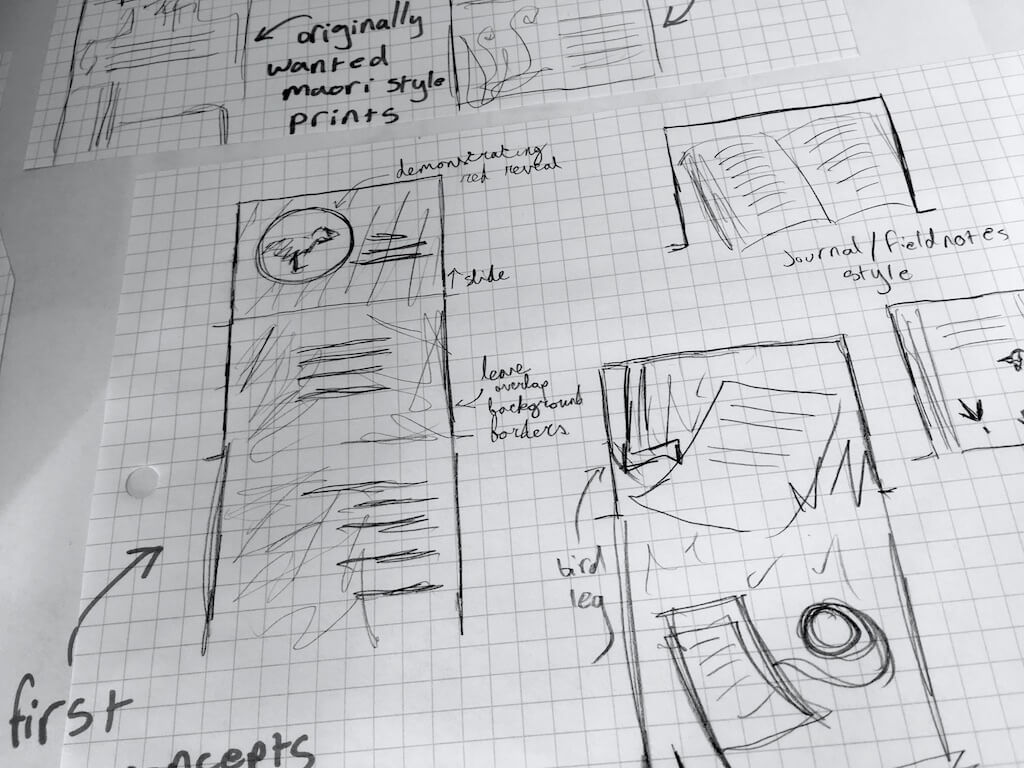 originally
wanted
maori style
prints
demonstrating
red reveal
slide
leave
overlap
background
borders
Journal/fieldnotes
style
bird
leg
first
concepts